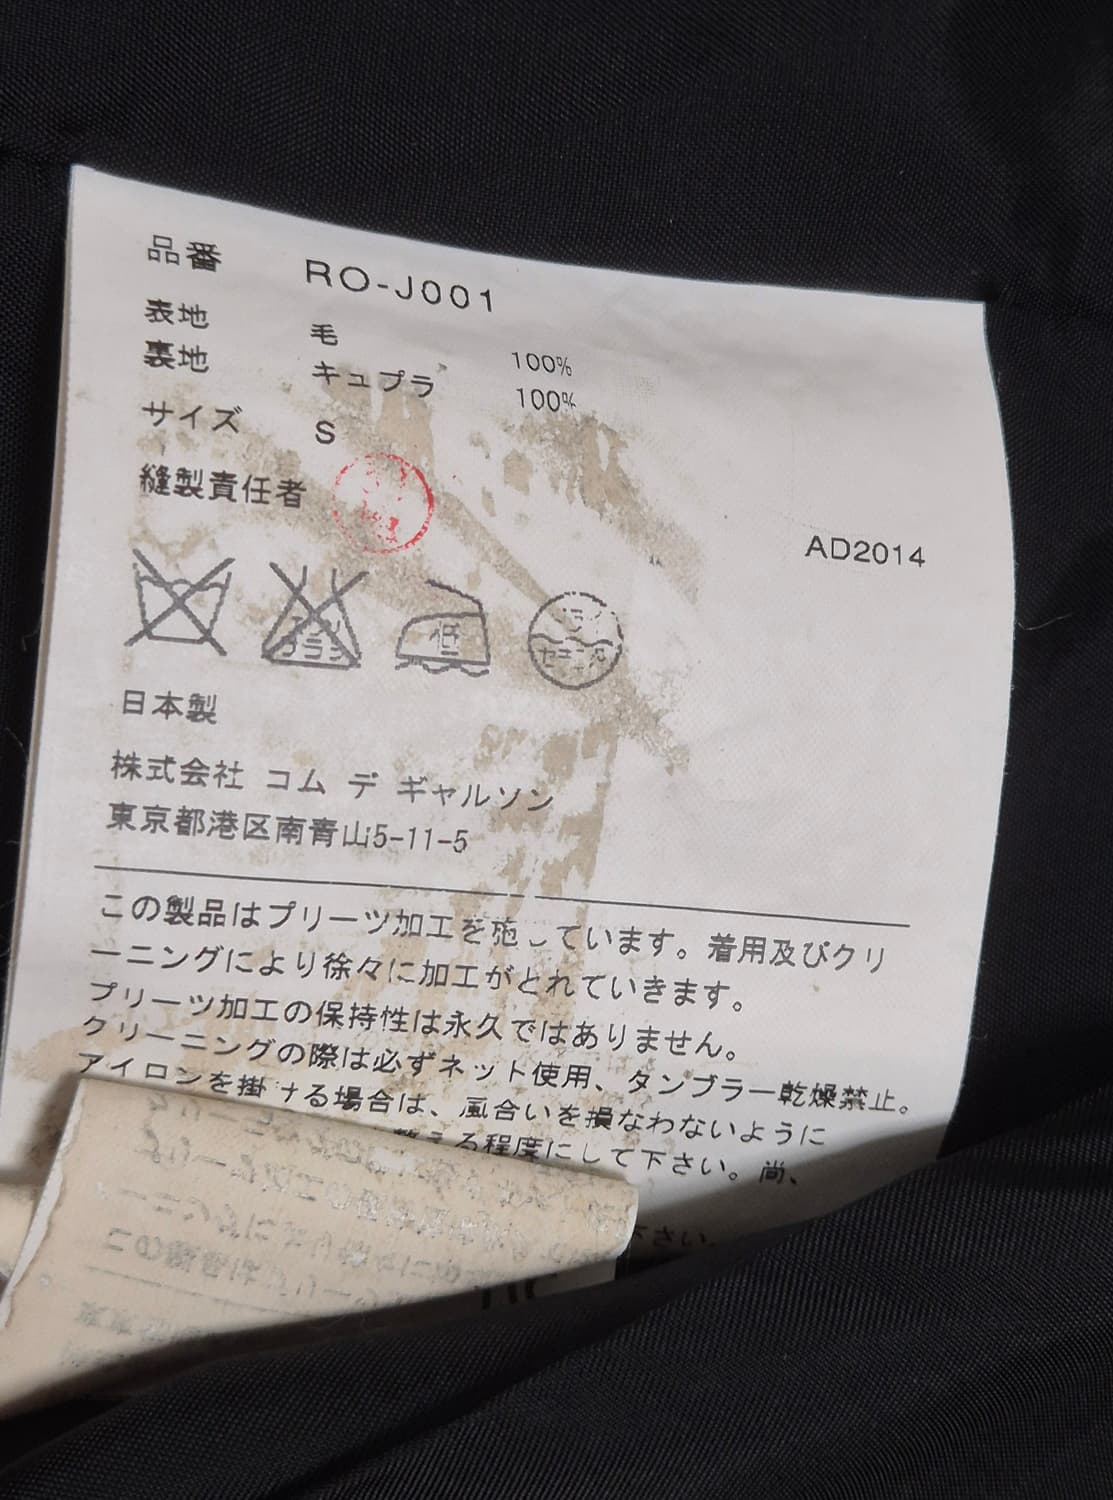 品番 RO-J001
表地 毛 100%
裏地 キュプラ 100%
サイズ S
縫製責任者
AD2014
エンソ
サラシ
低
ドライ
セキユ系
日本製
株式会社 コム デ ギャルソン
東京都港区南青山5-11-5
この製品はプリーツ加工を施しています。着用及びクリ
ーニングにより徐々に加工がとれていきます。
プリーツ加工の保持性は永久ではありません。
クリーニングの際は必ずネット使用、タンブラー乾燥禁止。
アイロンを掛ける場合は、風合いを損なわないように
整える程度にして下さい。尚、
下さい。